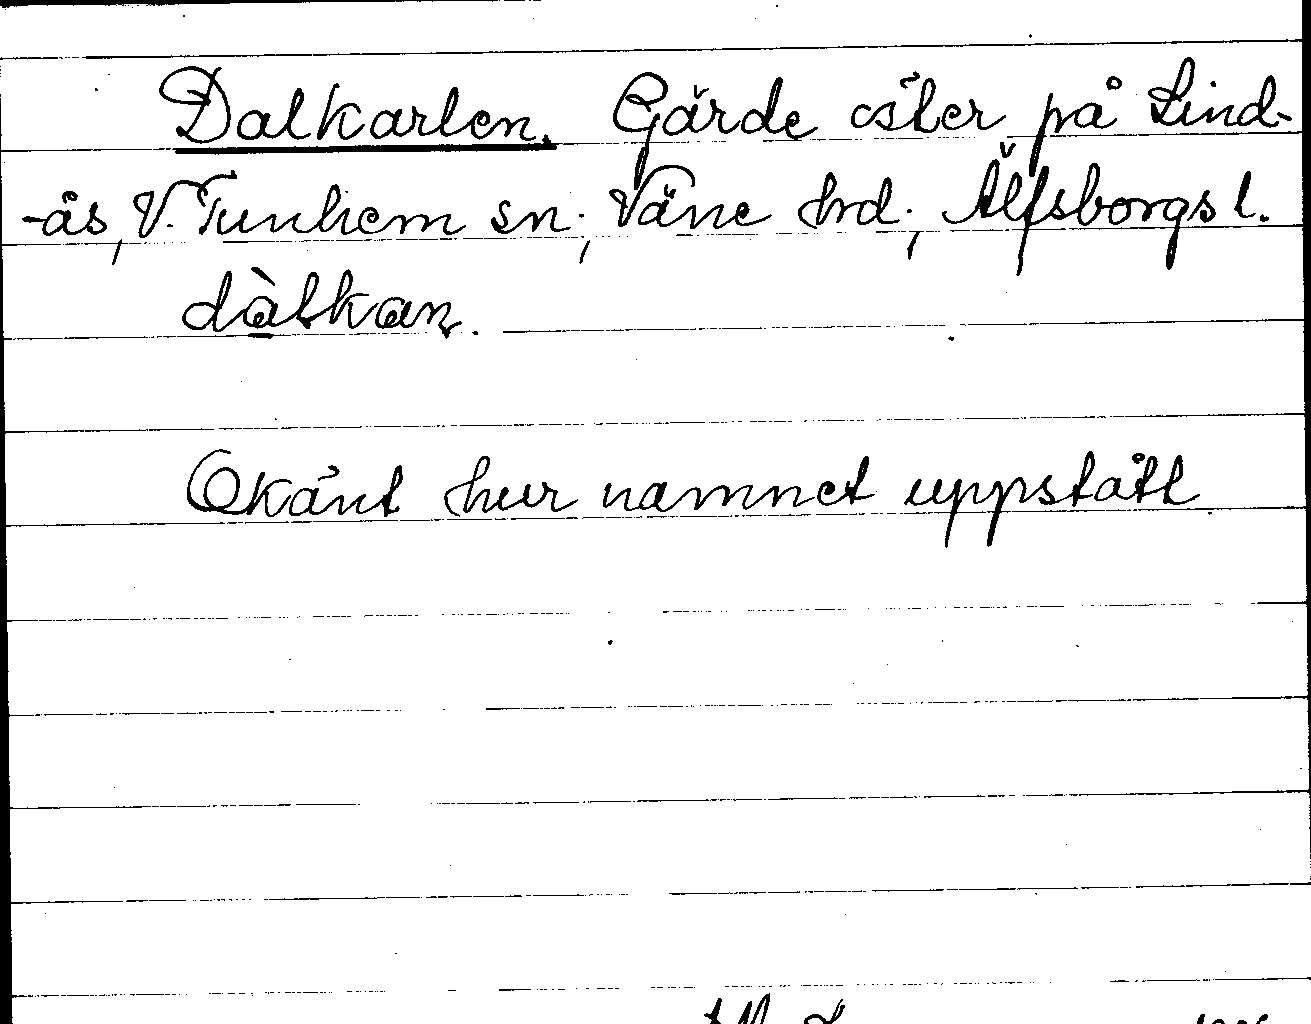 Dalkarlen. Gärde öster på Lind-
-ås, V. Tunhem sn., Väne hrd., Älfsborgs l.
dàlkan.
Okänt hur namnet uppstått.